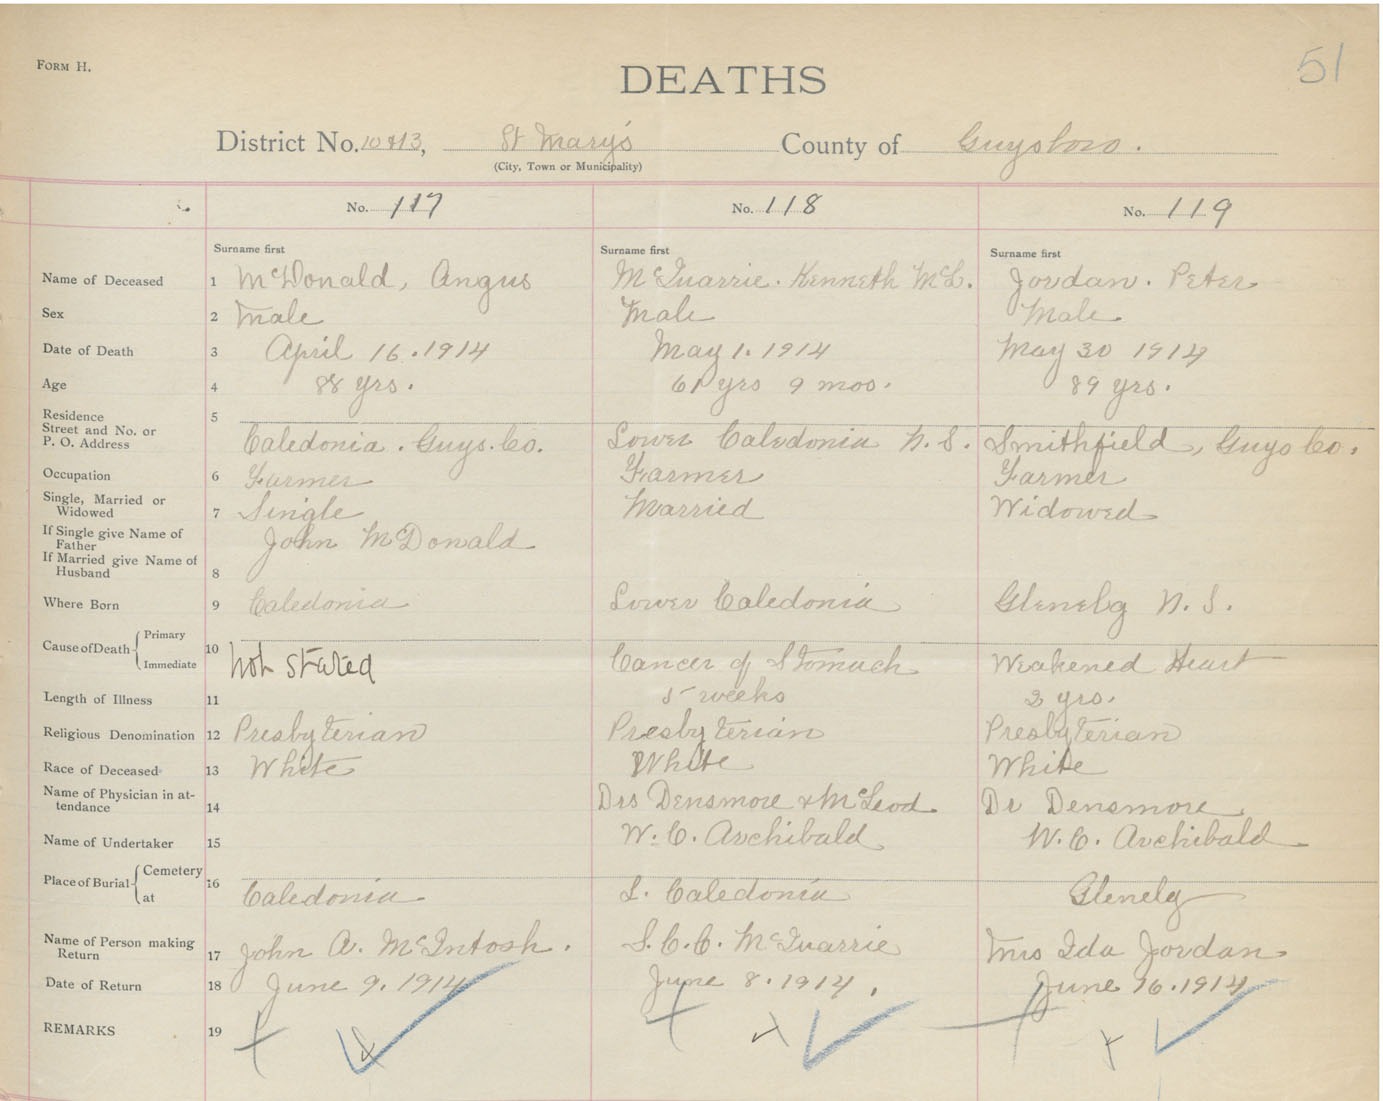 FORM H.
51
DEATHS
District No. 10 & 13, St Mary's County of Guysboro.
(City, Town or Municipality)
No. 117 No. 118 No. 119
Surname first Surname first Surname first
Name of Deceased 1 McDonald, Angus McQuarrie. Kenneth McL. Jordan. Peter
Sex 2 Male Male Male
Date of Death 3 April 16. 1914 May 1. 1914 May 30 1914
Age 4 88 yrs. 61 yrs 9 mos. 89 yrs.
Residence 5
Street and No. or
P. O. Address Caledonia. Guys. Co. Lower Caledonia N. S. Smithfield, Guys Co.
Occupation 6 Farmer Farmer Farmer
Single, Married or
Widowed 7 Single Married Widowed
If Single give Name of
Father John McDonald
If Married give Name of
Husband 8
Where Born 9 Caledonia Lower Caledonia Glenelg N. S.
Cause of Death Primary
Immediate 10 not stated Cancer of Stomach Weakened Heart
Length of Illness 11 5 weeks 3 yrs.
Religious Denomination 12 Presbyterian Presbyterian Presbyterian
Race of Deceased 13 White White White
Name of Physician in at-
tendance 14 Drs Densmore & McLeod. Dr Densmore
Name of Undertaker 15 W. C. Archibald W. C. Archibald
Place of Burial Cemetery 16
at Caledonia L. Caledonia Glenelg
Name of Person making
Return 17 John A. McIntosh. S. C. C. McQuarrie Mrs Ida Jordan
Date of Return 18 June 9. 1914 June 8. 1914. June 16. 1914
REMARKS 19